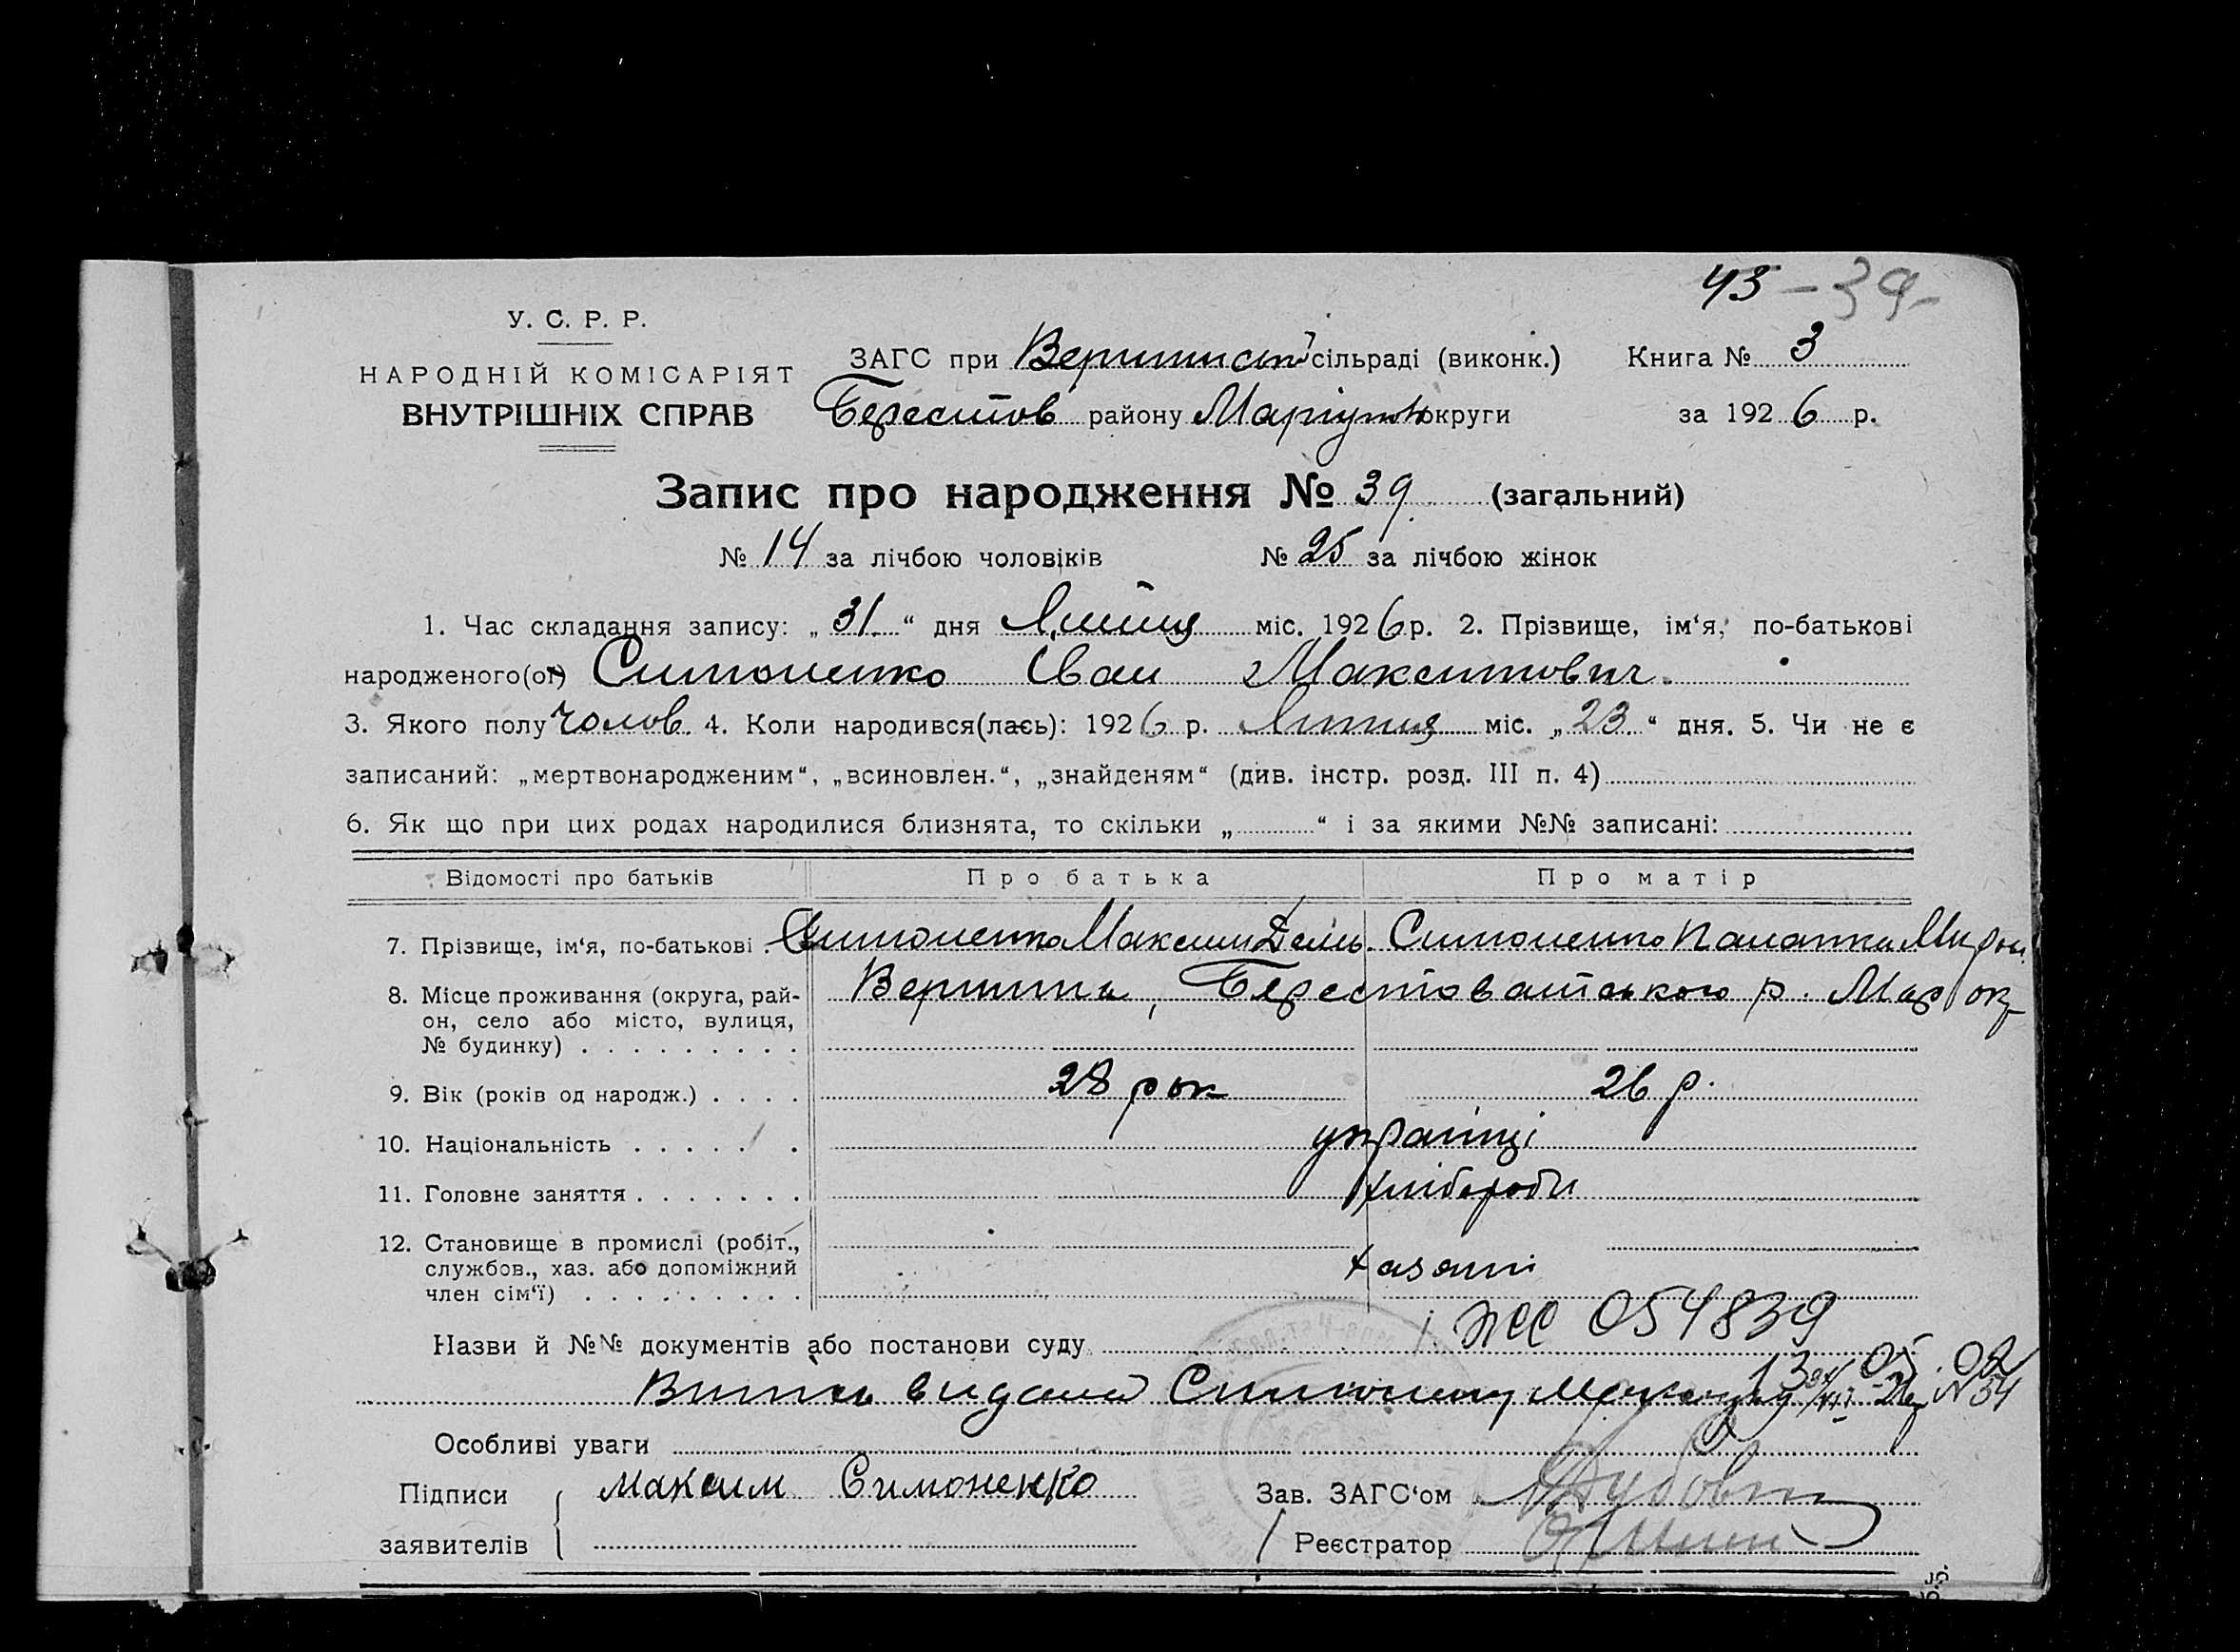 43 - 39 -
У. С. Р. Р.
НАРОДНІЙ КОМІСАРІЯТ
ВНУТРІШНІХ СПРАВ
ЗАГС при сільраді (виконк.) Книга № 3
Берестов району Маріуп округи за 1926 р.
Запис про народження № 39 (загальний)
№ 14 за лічбою чоловіків № 25 за лічбою жінок
1. Час складання запису: „31“ дня Липня міс. 1926 р. 2. Прізвище, ім‘я, по-батькові
народженого(ої) Симоненко Іван Максимович.
3. Якого полу чолов. 4. Коли народився(лаєь): 1926 р. Липня міс. „23“ дня. 5. Чи не є
записаний: „мертвонародженим“, „всиновлен.“, „знайденям“ (див. інстр. розд. III п. 4)
6. Як що при цих родах народилися близнята, то скільки „ “ і за якими №№ записані:
Відомості про батьків Про батька Про матір
7. Прізвище, ім‘я, по-батькові . Симоненко Максим Симоненко Мирон.
8. Місце проживання (округа, рай-
он, село або місто, вулиця,
№ будинку) . . . . . . . . .
Вершина, Берестоватського р. Мар ок
9. Вік (років од народж.) . . . . 28 рок 26 р.
10. Національність . . . . . . українці
11. Головне заняття . . . . . . . хлібороби
12. Становище в промислі (робіт.,
службов., хаз. або допоміжний
член сім‘ї) . . . . . . . . .
хазяїни
Назви й №№ документів або постанови суду 054839
13 05. 02
Випись видана Симоненку №34
Особливі уваги
Підписи
заявителів
Максим Симоненко
Зав. ЗАГС‘ом
Реєстратор